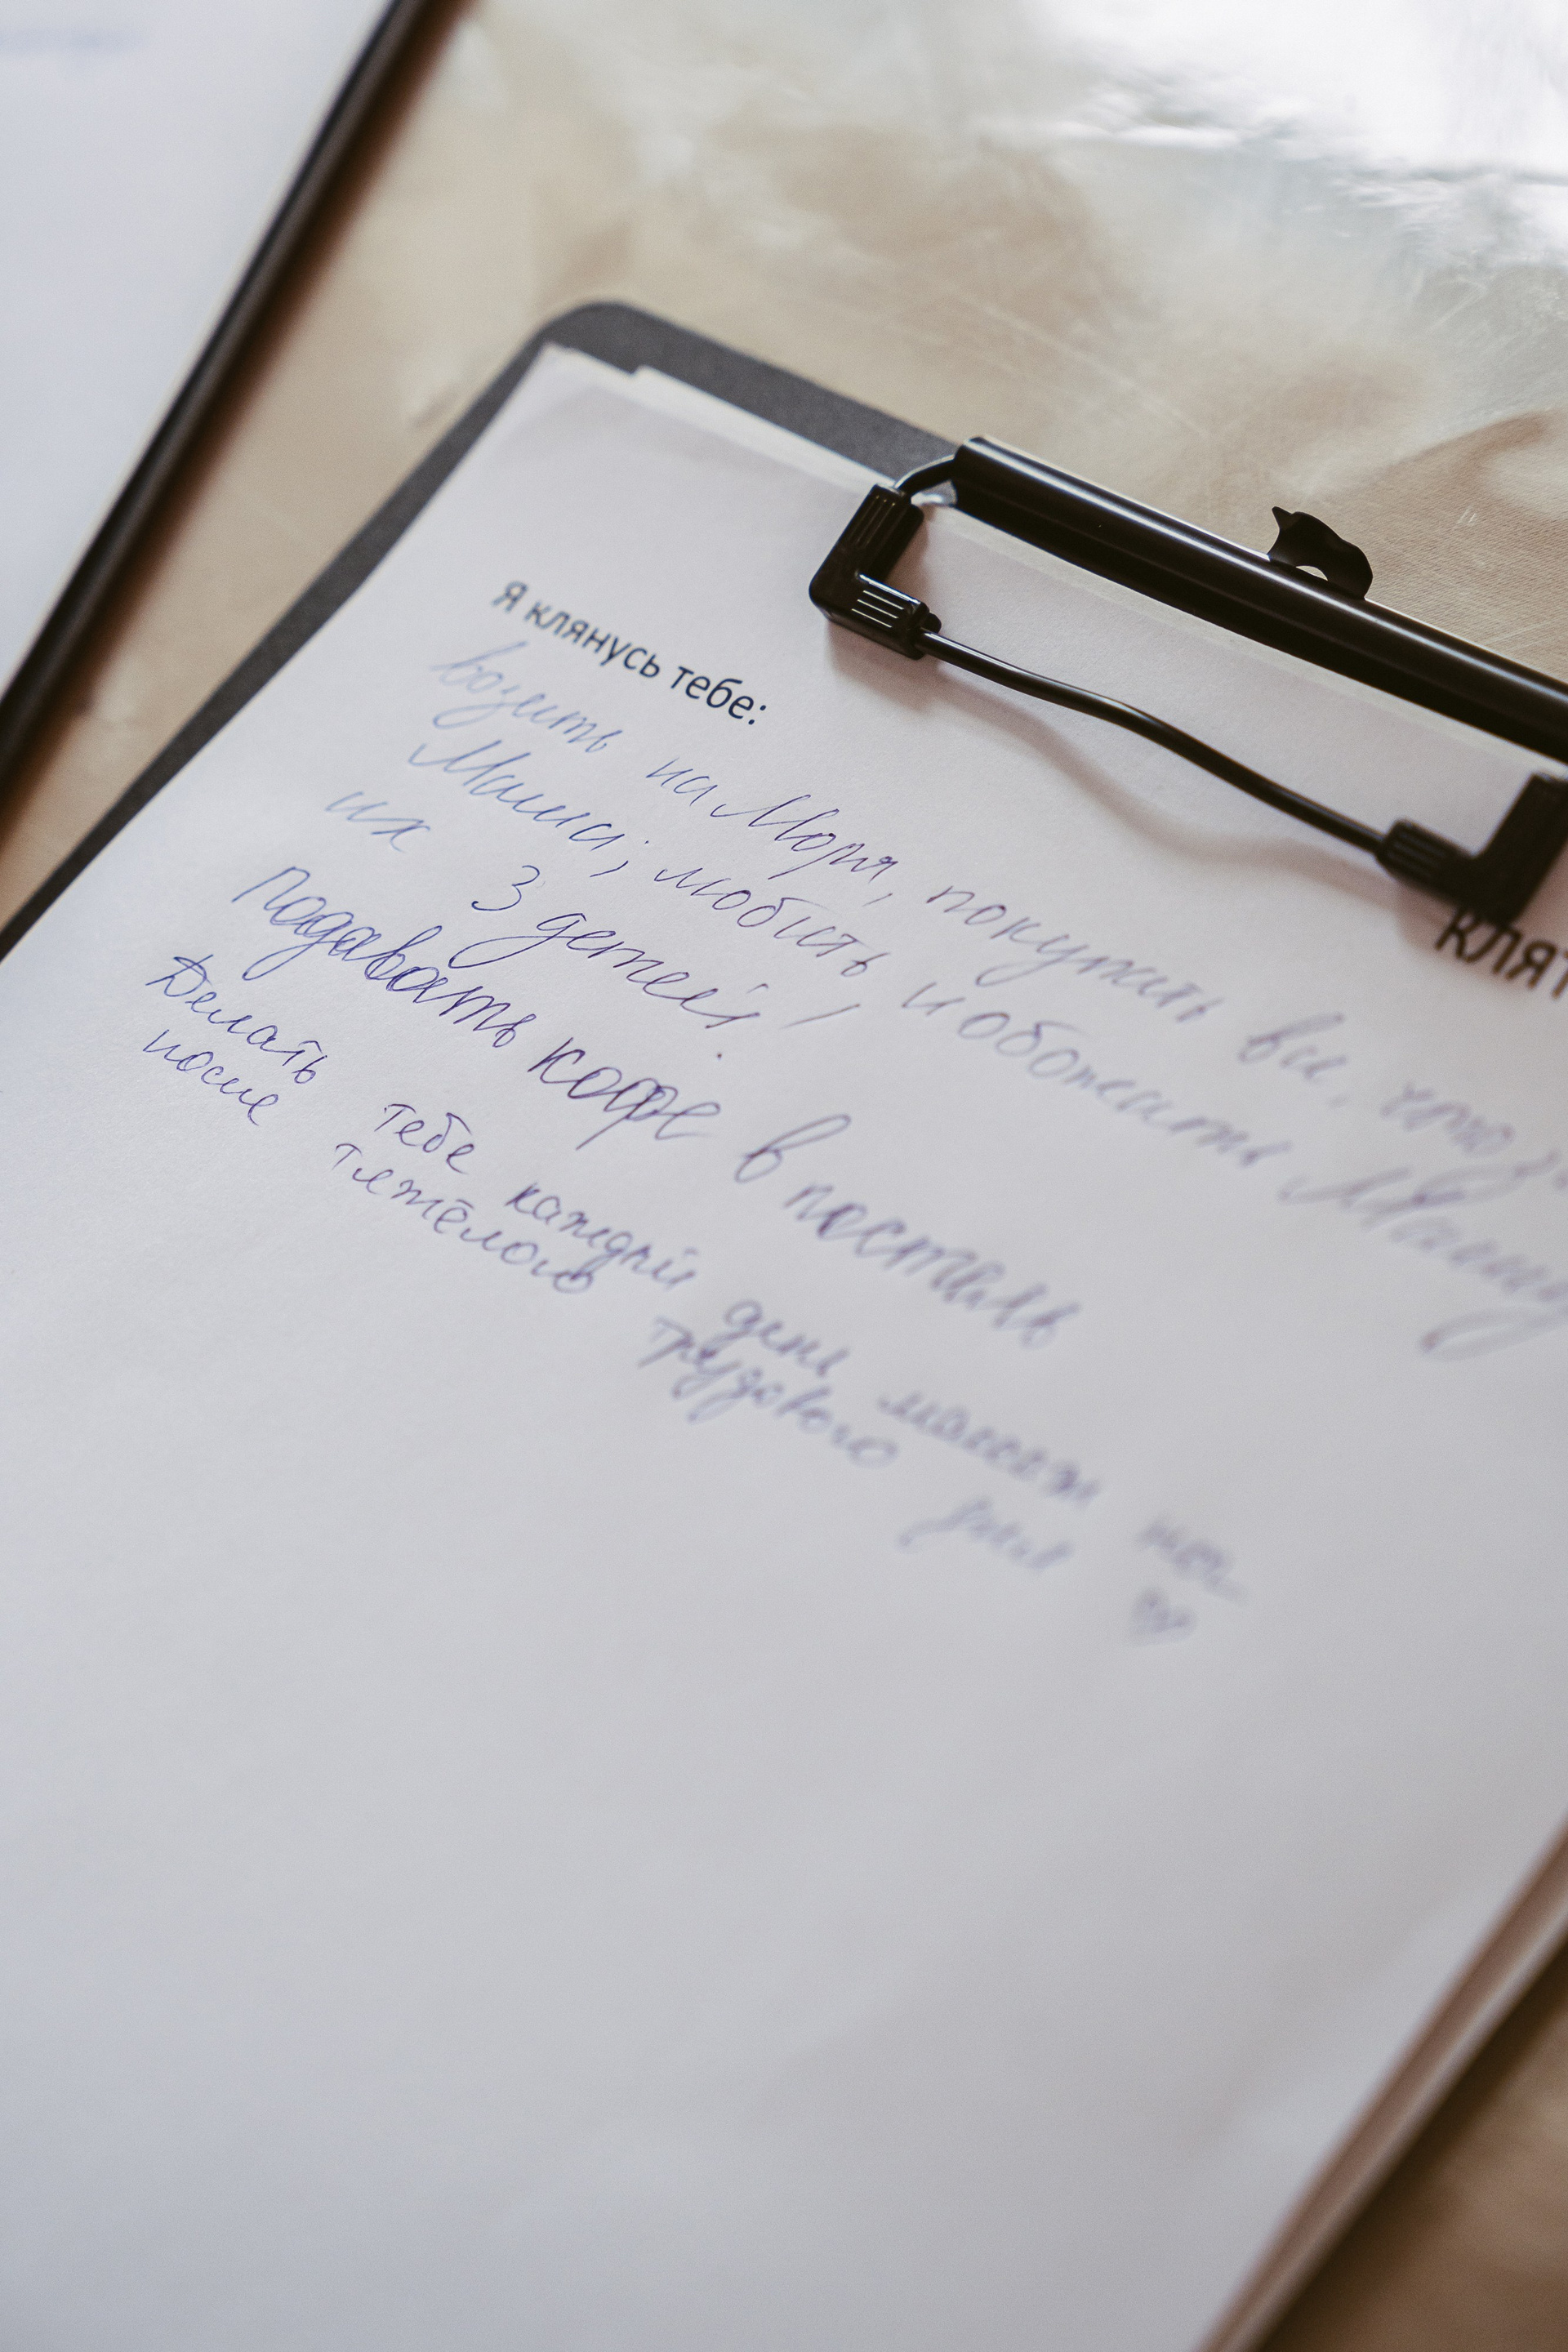 КЛЯТ
Я клянусь тебе:
возить на Моря, покупать всё, что
Маша; любить и обожать Машу
их 3 детей!
Подавать кофе в постель
Делать тебе каждый день массаж ног
после тяжёлого трудового дня